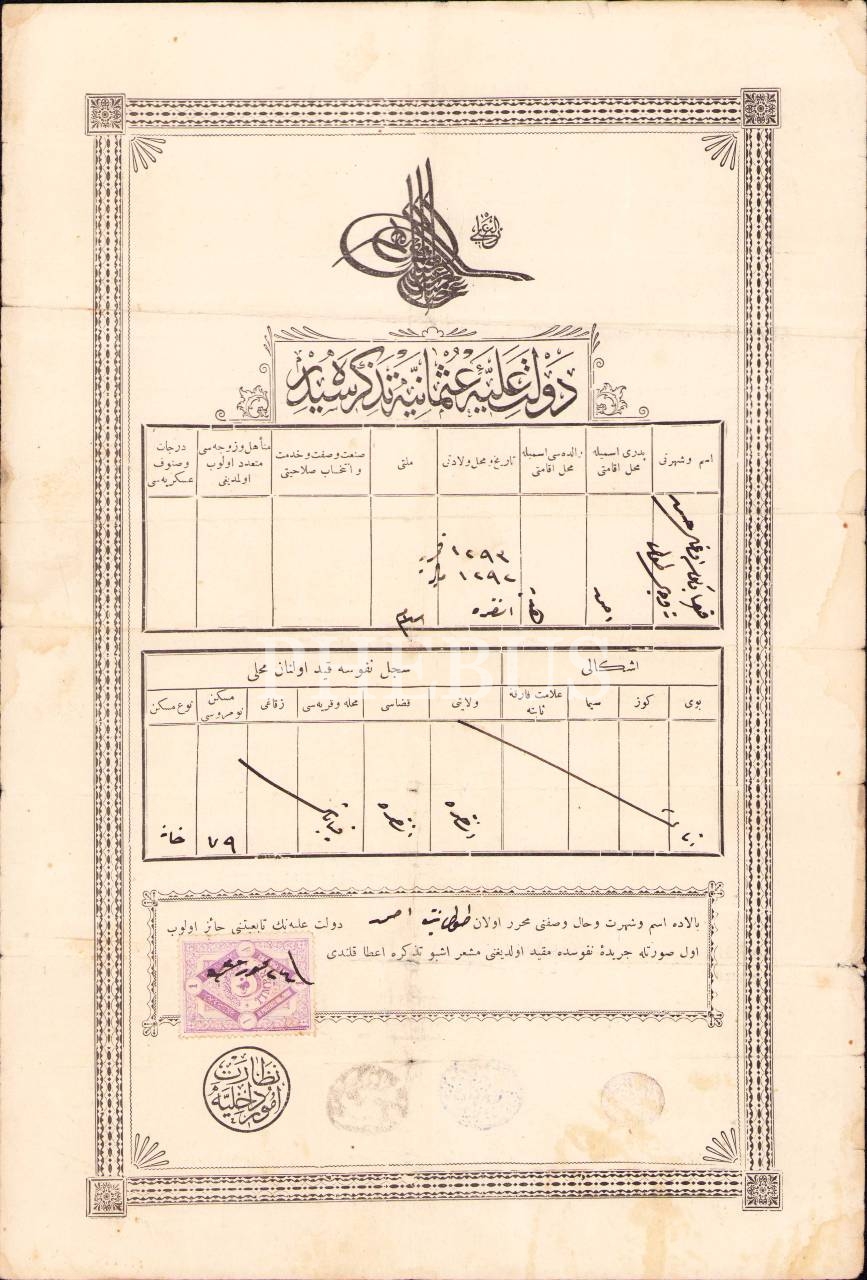 الغازی
دولت علیهٔ عثمانیه تذکره سیدر
اسم و شهرتی
پدری اسمیله محل اقامتی
والده سی اسمیله محل اقامتی
تاریخ و محل ولادتی
ملتی
صنعت و صفت و خدمت و انتخاب صلاحیتی
متأهل و زوجه سی متعدد اولوب اولمدیغی
درجات و صنوف عسکریه سی
احمد
۱۲۹۳
۱۲۹۲
انقره
اشکالی
سجل نفوسه قید اولنان محلی
بوی
کوز
سیما
علامت فارقهٔ ثابته
ولایتی
قضاسی
محله و قریه سی
زقاغی
مسکن نومروسی
نوع مسکن
انقره
انقره
۷۹
خانه
PHEBUS
بالاده اسم و شهرت و حال و صفتی محرر اولان احمد دولت علیه نك تابعیتنی حائز اولوب
اول صورتله جریدهٔ نفوسده مقید اولدیغنی مشعر اشبو تذکره اعطا قلندی
نظارت امور داخلیه